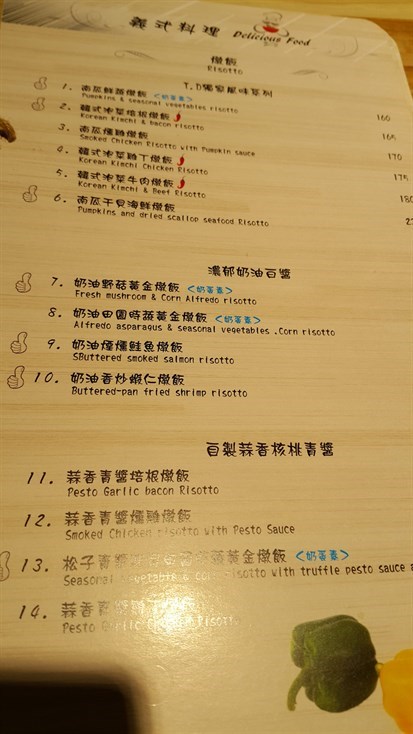 義式料理 Delicious Food
燉飯
Risotto
T.D獨家風味系列
1. 南瓜鮮蔬燉飯 <奶蛋素>
Pumpkins & seasonal vegetables risotto
160
2. 韓式泡菜培根燉飯
Korean Kimchi & bacon risotto
165
3. 南瓜燻雞燉飯
Smoked Chicken Risotto with Pumpkin sauce
170
4. 韓式泡菜雞丁燉飯
Korean Kimchi Chicken Risotto
175
5. 韓式泡菜牛肉燉飯
Korean Kimchi & Beef Risotto
180
6. 南瓜干貝海鮮燉飯
Pumpkins and dried scallop seafood Risotto
濃郁奶油白醬
7. 奶油野菇黃金燉飯 <奶蛋素>
Fresh mushroom & Corn Alfredo risotto
8. 奶油田園時蔬黃金燉飯 <奶蛋素>
Alfredo asparagus & seasonal vegetables .Corn risotto
9. 奶油煙燻鮭魚燉飯
SButtered smoked salmon risotto
10. 奶油香炒蝦仁燉飯
Buttered-pan fried shrimp risotto
自製蒜香核桃青醬
11. 蒜香青醬培根燉飯
Pesto Garlic bacon Risotto
12. 蒜香青醬燻雞燉飯
Smoked Chicken risotto with Pesto Sauce
13. 松子青醬 蔬黃金燉飯 <奶蛋素>
Seasonal vegetable & corn risotto with truffle pesto sauce
14. 蒜香青醬
Pesto Garlic Chicken Risotto